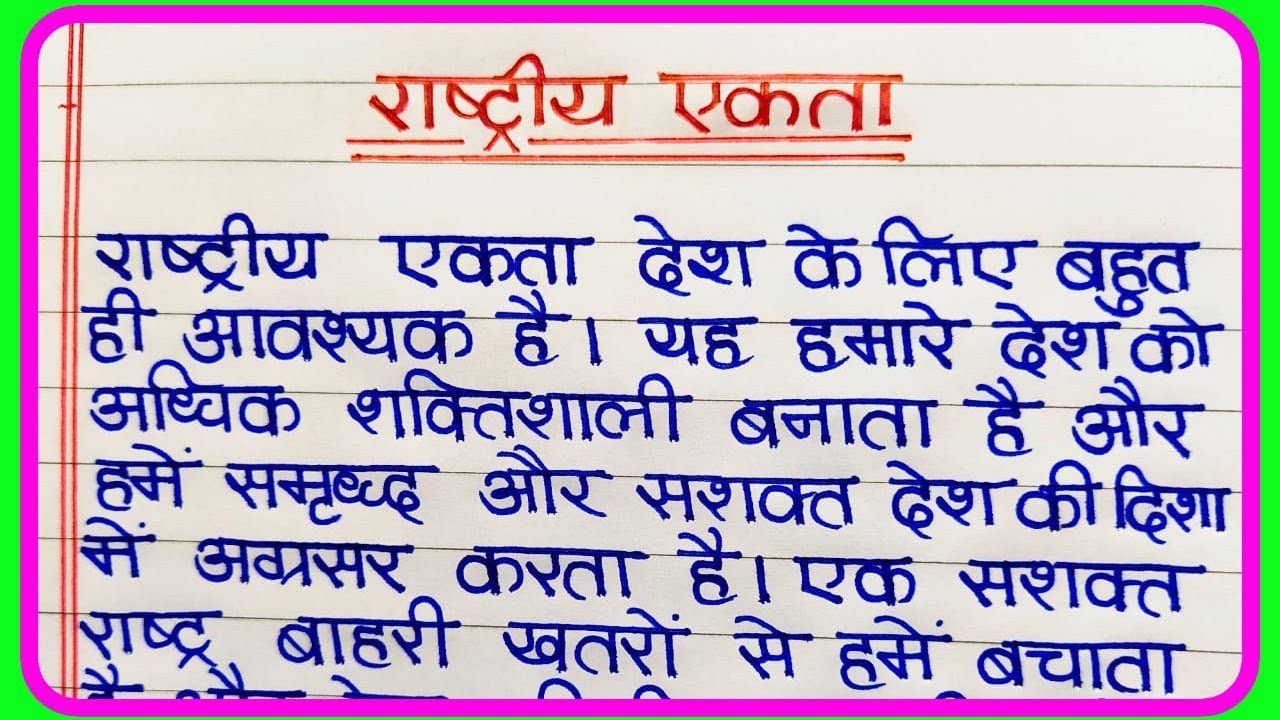 राष्ट्रीय एकता
राष्ट्रीय एकता देश के लिए बहुत
ही आवश्यक है। यह हमारे देश को
अधिक शक्तिशाली बनाता है और
हमें समृध्द और सशक्त देश की दिशा
में अग्रसर करता है। एक सशक्त
राष्ट्र बाहरी खतरों से हमें बचाता
है और